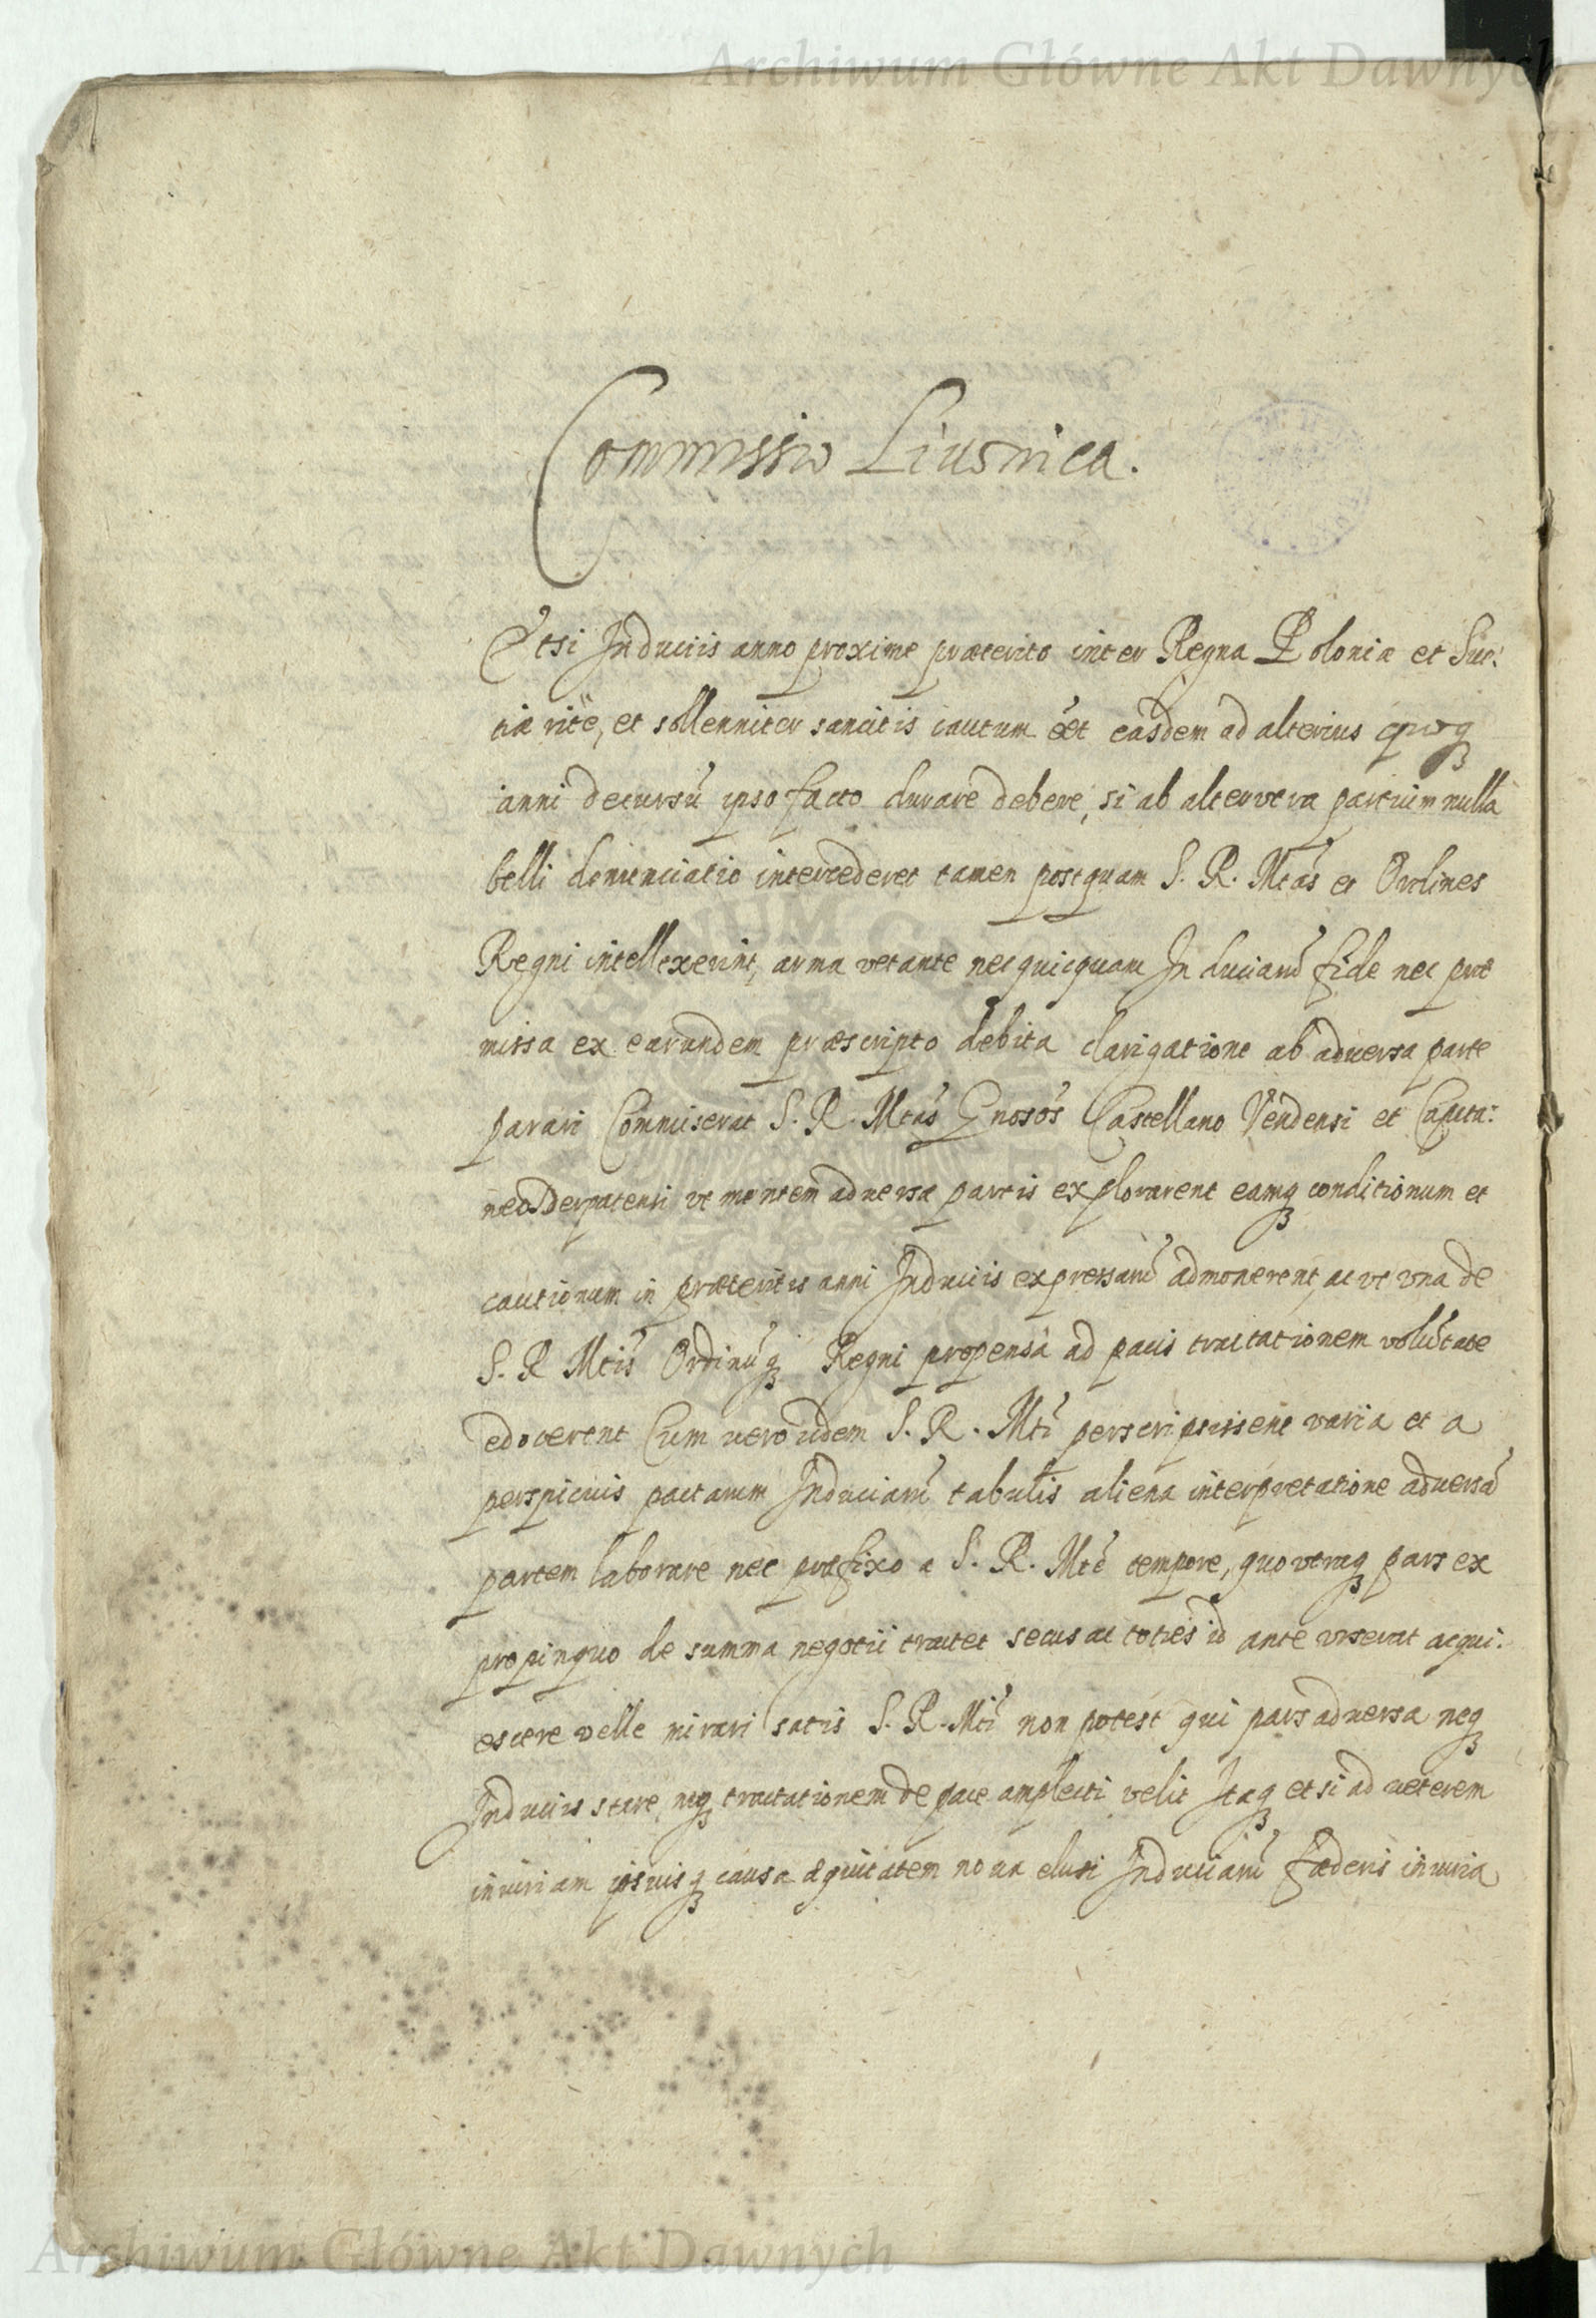 Archiwum Główne Akt Dawnych
Commissio Liuonica.
Etsi Induciis anno proxime præterito inter Regna Poloniæ et Sue:
tiæ rite, et sollenniter sancitis cautum eēt easdem ad alterius quoq
anni decursū ipso facto durare debere, si ab alterutra partium nulla
belli denunciatio intercederet tamen postquam S. R. Mtas et Ordines
Regni intellexerint, arma vetante nec quicquam Induciarū fide nec præ
missa ex earundem præscripto debita clarigatione ab aduersa parte
parari Commiserat S. R. Mtas Gnosos Castellano Vendensi et Capita:
neo Derpatensi vt mentem aduersæ partis explorarent eamq conditionum et
cautionum in præteritis anni Induciis expressarū admonerent, ac vt vna de
S. R Mtis Ordinūq Regni propensa ad pacis tractationem volūtate
edocerent Cum uero iidem S. R. Mti perscripsissent varia et a
perspicuis pactarum Induciarū tabulis aliena interpretatione aduersā
partem laborare nec præfixo a S. R. Mte tempore, quo vtraq pars ex
propinquo de summa negotii tractet secus ac toties id ante vrserat acqui:
escere velle mirari satis S. R. Mti non potest qui pars aduersa neq
Induciis stare, neq tractationem de pace amplecti velit Itaq etsi ad ueterem
iniuriam ipsiusq causæ æquitatem noua elusi Induciarū fæderis iniuria
Archiwum Główne Akt Dawnych